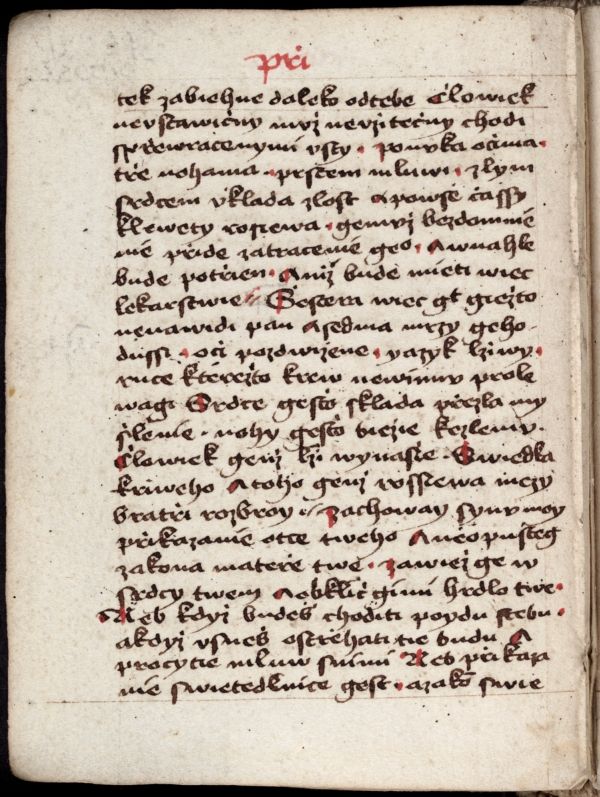 při
tek zabiehne daleko odtebe Cżlowiek
nevstawičny muž nevžitečny chodi
sprewracenymi vsty · ponuka očima ·
tře nohama · prstem mluwi · zlym
srdcem vklada zlost Apowše čassy
klewety rosiewa · gemuž bezdomnie
nie přide zatracenie geo · Awnahle
bude potřien · Aniž bude mieti wiec
lekarstwie Ssestera wiec gt giežto
nenawidi pan Asedma mrzy geho
dussi · oči pozdwižene · yazyk lživy ·
ruce kterežto krew newinnu prole
wagi Srdce gesto sklada přezla my
šlenie · nohy gesto biezie kezlemu ·
Cżlowiek genž lži wynasie · Swiedka
křiweho Atoho genž rossiewa mezy
bratři rozbroy zachoway synu moy
přikazanie otce tweho Aneopusteg
zakona mateře twe · zawiež ge w
srdcy twem Aobklič gimi hrdlo twe ·
Neb když budeš choditi poydu stebu ·
akdyž vsneš ostřehati tie budu A
procytie mluw snimi Neb přikaza
nie swietedlnice gest · azakō swie